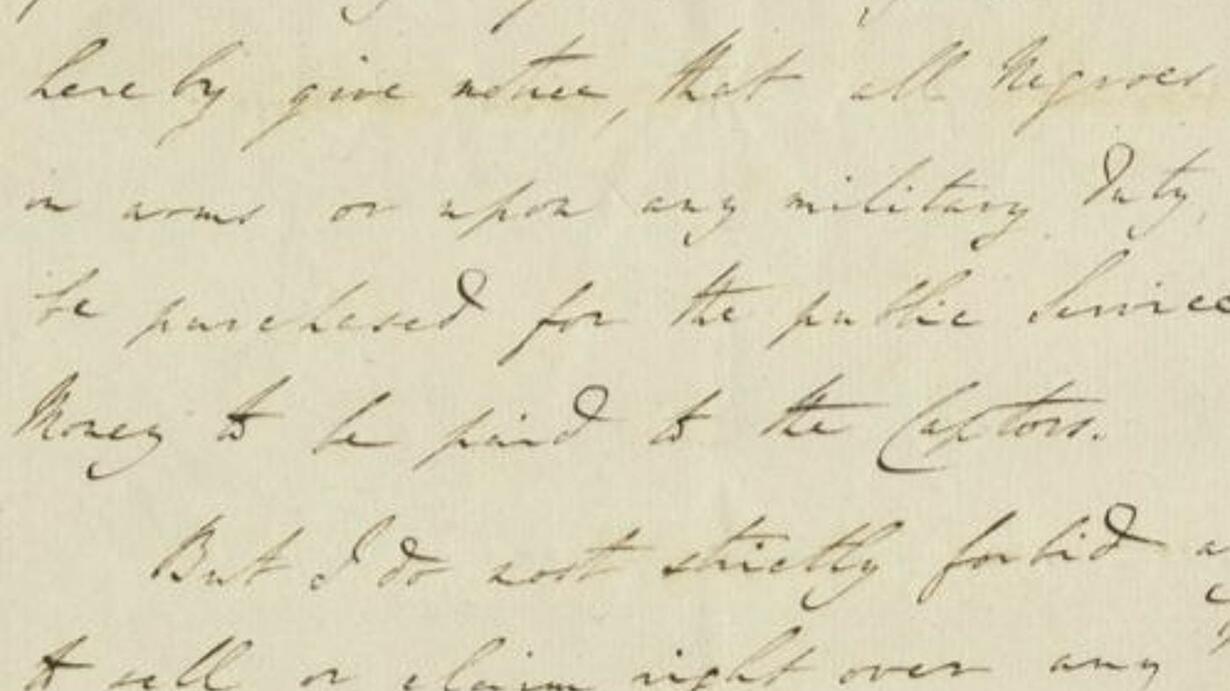 hereby give notice, that all Negroes
in arms or upon any military Duty,
be purchased for the public Service
Money to be paid to the Captors.
But I do most strictly forbid
to sell or claim right over any